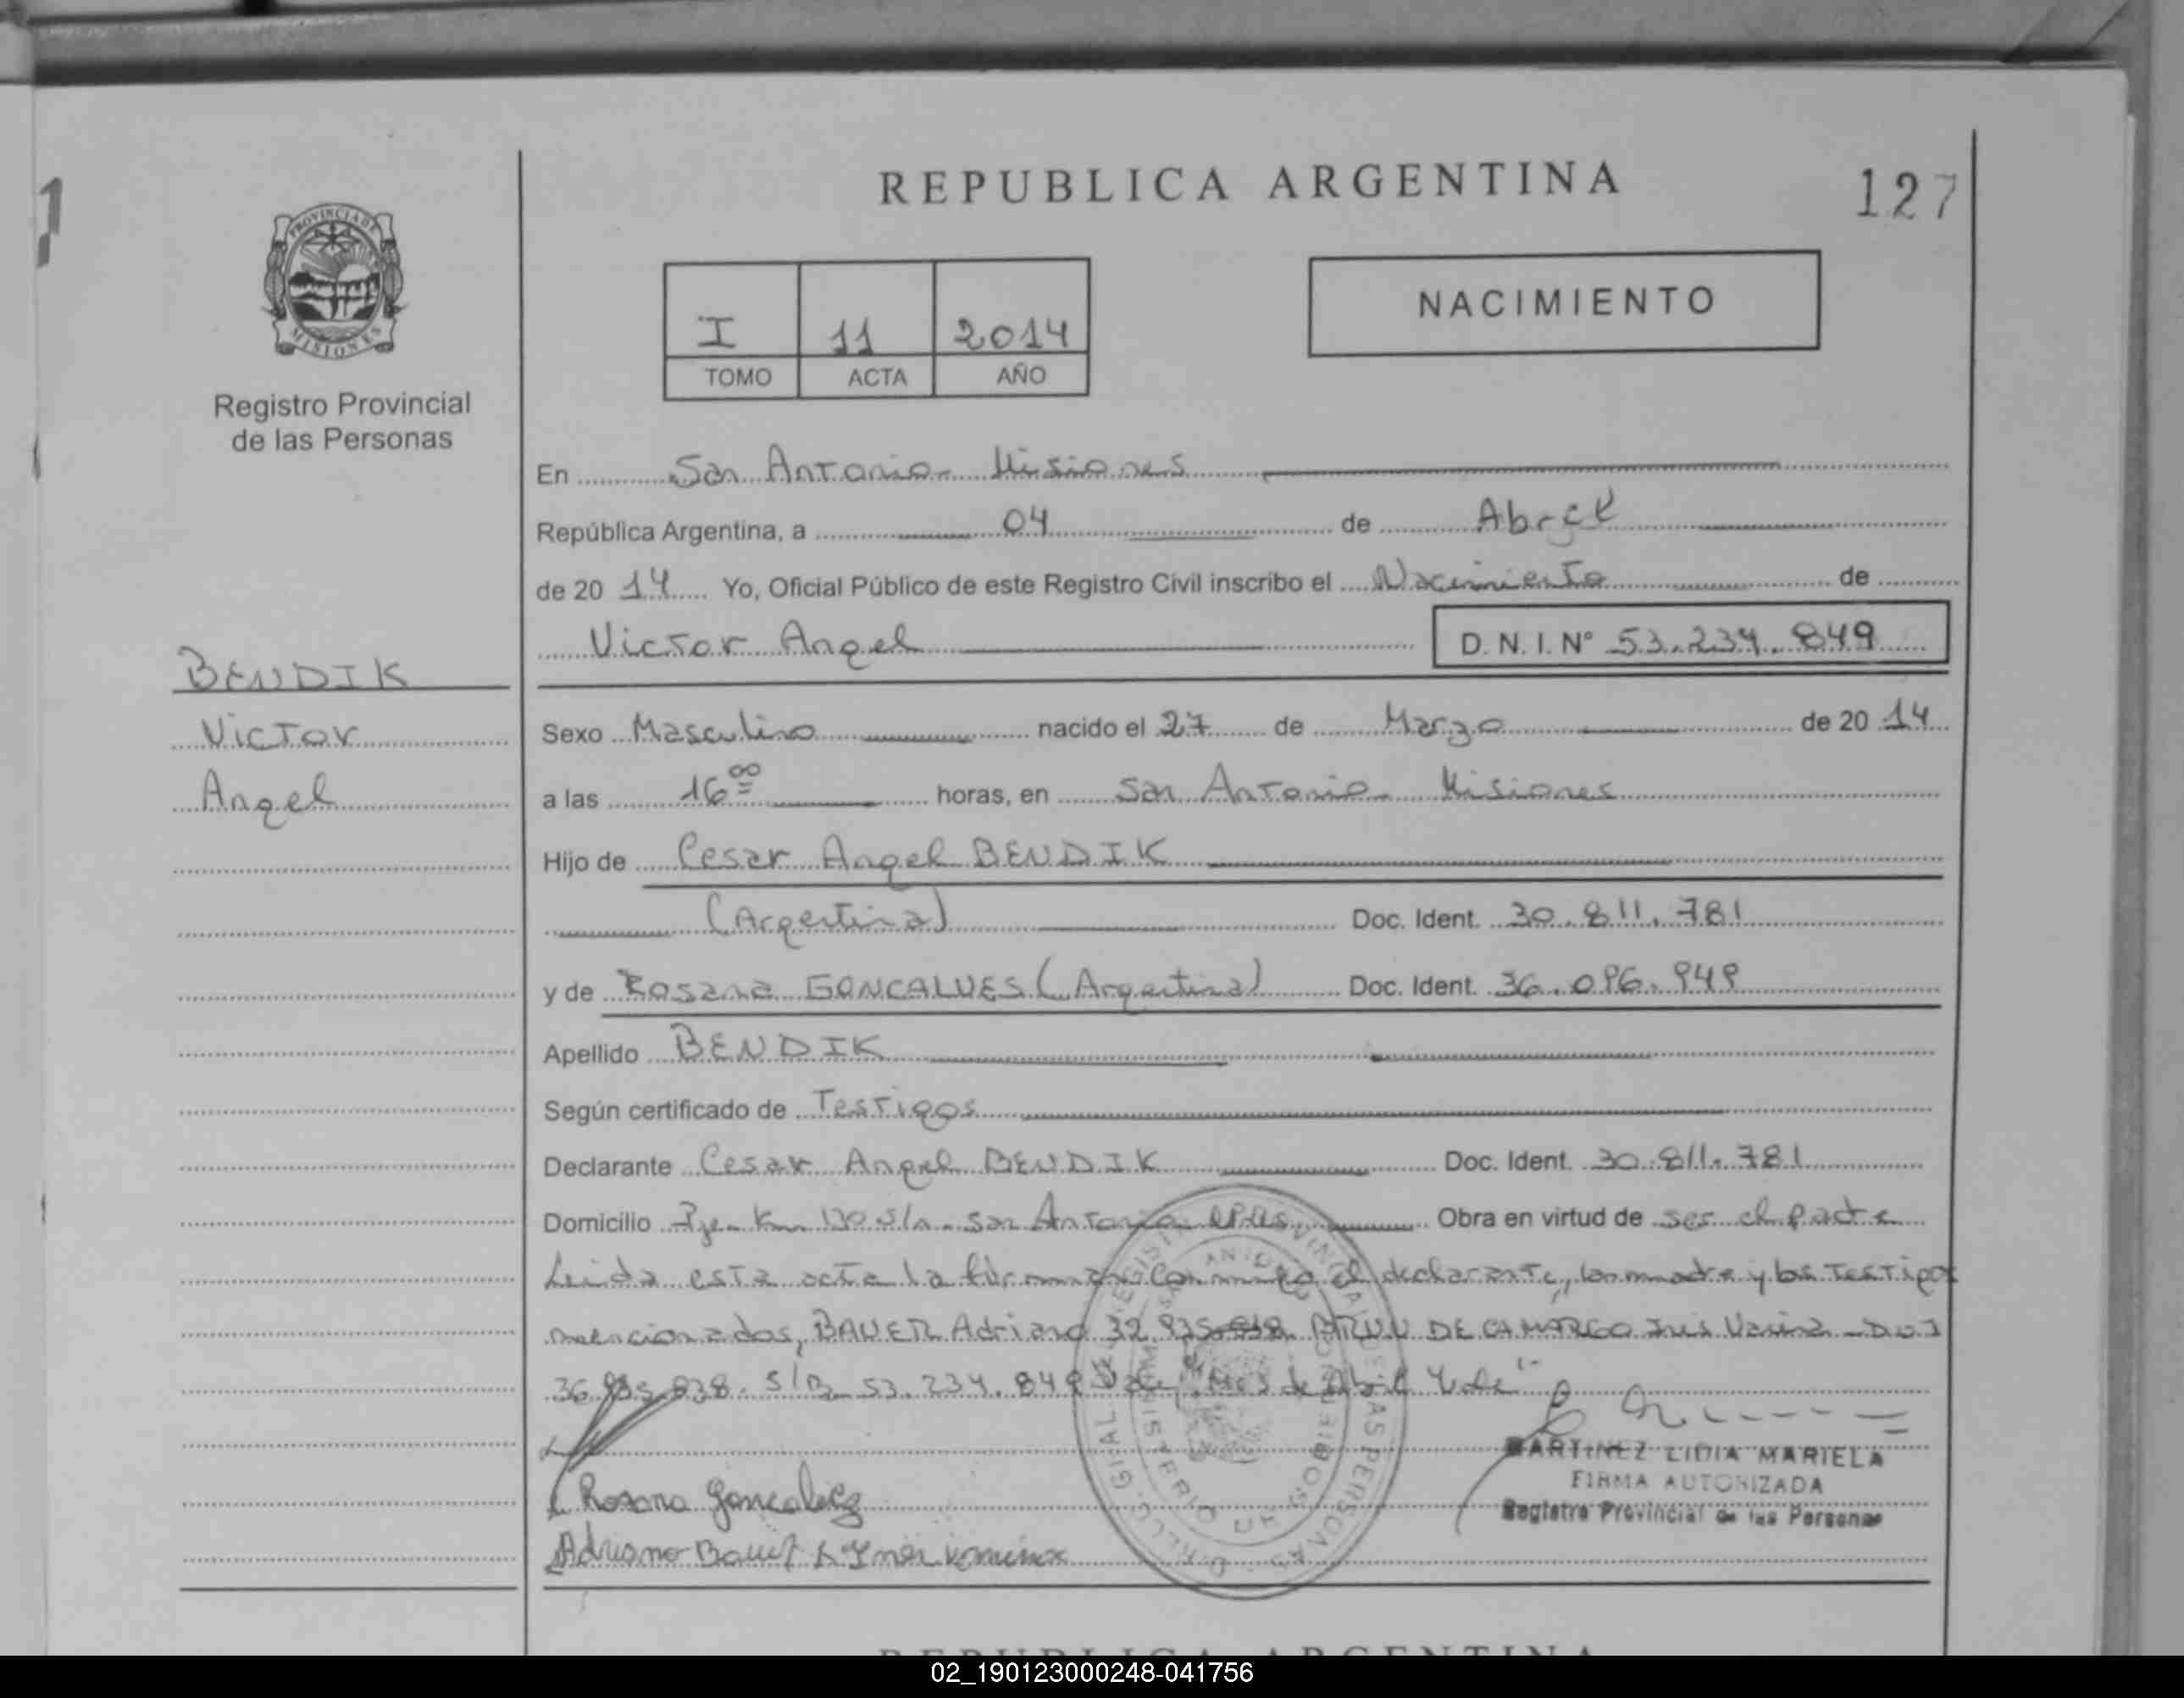 REPUBLICA ARGENTINA
127
PROVINCIA DE
MISIONES
Registro Provincial
de las Personas
I 11 2014
TOMO ACTA AÑO
NACIMIENTO
En San Antonio Misiones
República Argentina, a 04 de Abril
de 20 14 Yo, Oficial Público de este Registro Civil inscribo el Nacimiento de
Victor Angel D. N. I. N° 53.234.849
BENDIK
Victor
Angel
Sexo Masculino nacido el 27 de Marzo de 20 14
a las 16 00 horas, en San Antonio Misiones
Hijo de Cesar Angel BENDIK
(Argentina) Doc. Ident. 30.811.781
y de Rosana GONCALVES (Argentina) Doc. Ident. 36.096.949
Apellido BENDIK
Según certificado de Testigos
Declarante Cesar Angel BENDIK Doc. Ident. 30.811.781
Domicilio Km 130 s/n. San Antonio Obra en virtud de ser el padre
Leida esta acta la firman conmigo el declarante, la madre y los Testigos
mencionados, BAUER Adriano 32. DE CAMARGO DNI
36. 838. S/B 53.234.849 Vale, Mes de Abril Vale
Rosana Goncalvez
Adriano Bauer
MARTINEZ LIDIA MARIELA
FIRMA AUTORIZADA
Registro Provincial de las Personas
REPUBLICA ARGENTINA
02_190123000248-041756